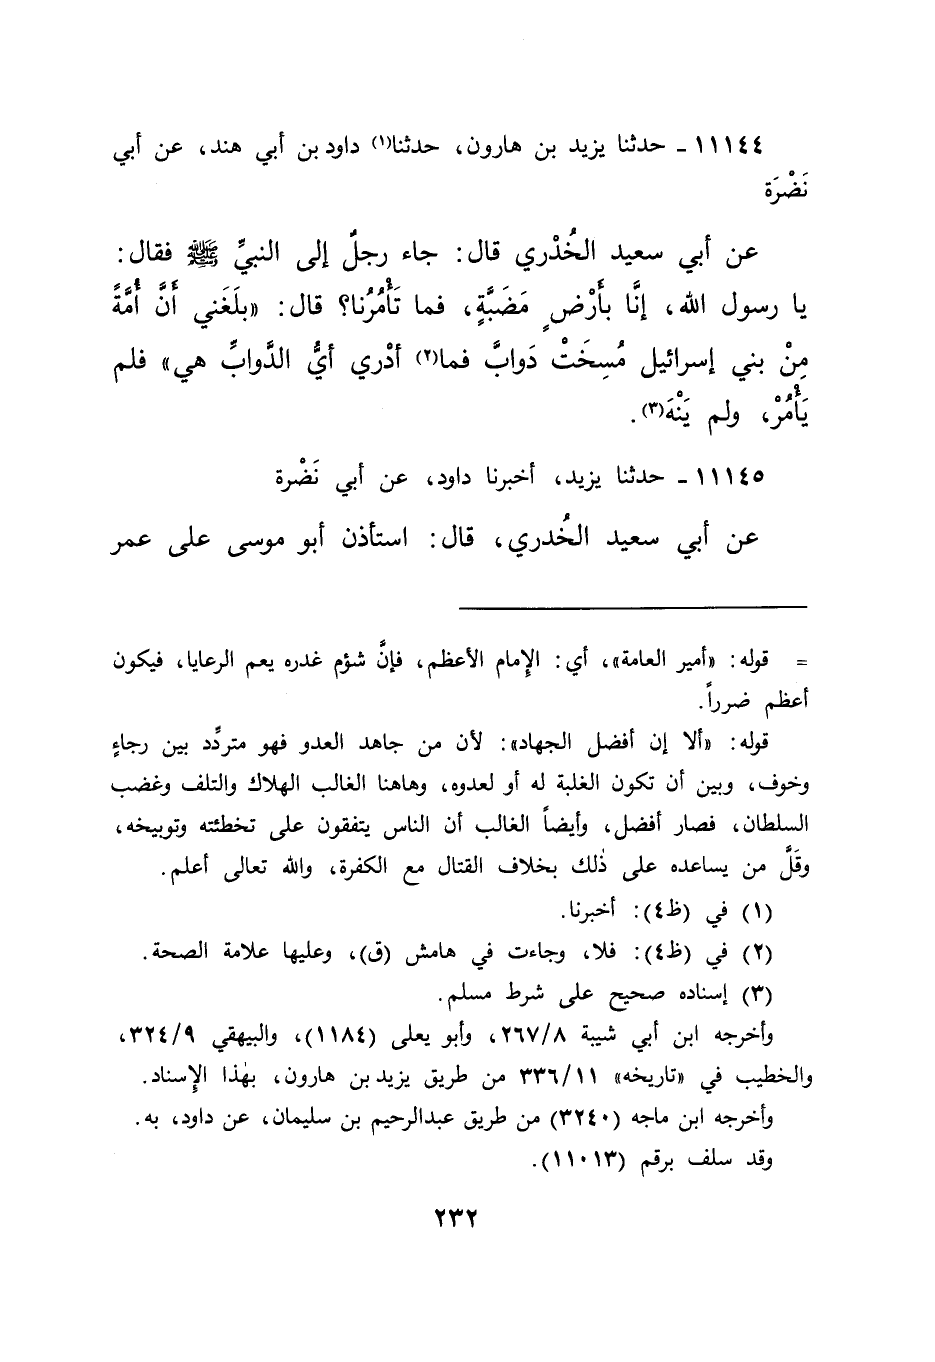 ١١١٤٤ ـ حدثنا يزيد بن هارون، حدثنا(١) داود بن أبي هند، عن أبي
نَضْرَة
عن أبي سعيد الخُدْري قال: جاء رجلٌ إلى النبيِّ ﷺ فقال:
يا رسول الله، إنَّا بأَرْضٍ مَضَبَّةٍ، فما تَأْمُرُنا؟ قال: «بلَغَني أَنَّ أُمَّةً
مِنْ بني إسرائيل مُسِخَتْ دَوابَّ فما(٢) أدْري أيُّ الدَّوابِّ هي» فلم
يَأْمُرْ، ولم يَنْهَ(٣).
١١١٤٥ ـ حدثنا يزيد، أخبرنا داود، عن أبي نَضْرة
عن أبي سعيد الخُدري، قال: استأذن أبو موسى على عمر
= قوله: «أمير العامة»، أي: الإمام الأعظم، فإنَّ شؤم غدره يعم الرعايا، فيكون
أعظم ضرراً.
قوله: «ألا إن أفضل الجهاد»: لأن من جاهد العدو فهو متردِّد بين رجاءٍ
وخوف، وبين أن تكون الغلبة له أو لعدوه، وهاهنا الغالب الهلاك والتلف وغضب
السلطان، فصار أفضل، وأيضاً الغالب أن الناس يتفقون على تخطئته وتوبيخه،
وقَلَّ من يساعده على ذٰلك بخلاف القتال مع الكفرة، والله تعالى أعلم.
(١) في (ظ٤): أخبرنا.
(٢) في (ظ٤): فلا، وجاءت في هامش (ق)، وعليها علامة الصحة.
(٣) إسناده صحيح على شرط مسلم.
وأخرجه ابن أبي شيبة ٢٦٧/٨، وأبو يعلى (١١٨٤)، والبيهقي ٣٢٤/٩،
والخطيب في «تاريخه» ٣٣٦/١١ من طريق يزيد بن هارون، بهٰذا الإسناد.
وأخرجه ابن ماجه (٣٢٤٠) من طريق عبدالرحيم بن سليمان، عن داود، به.
وقد سلف برقم (١١٠١٣).
٢٣٢